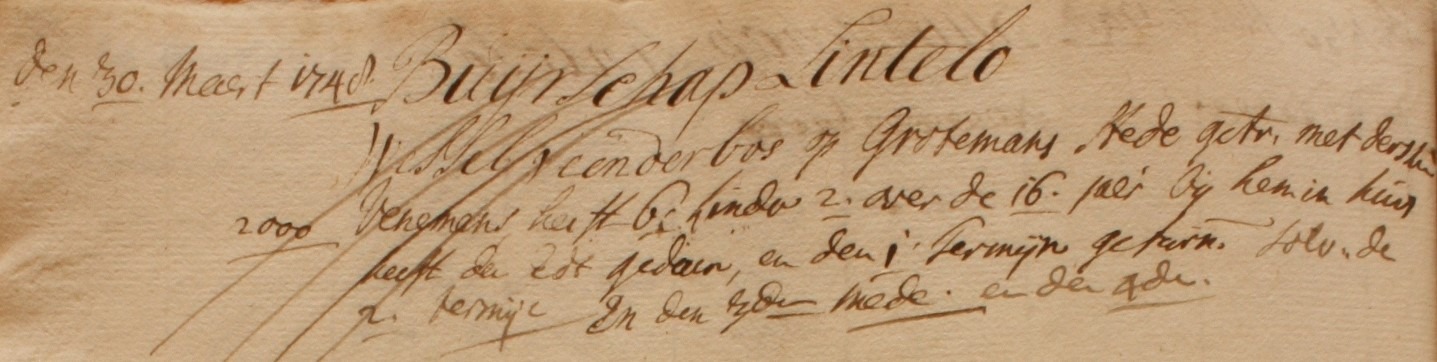 den 30. Maert 1748 Buijrschap Lintelo
Wessel Veenderbos op Grotemans Stede getr. met derskin
2000 Venemans heeft 6. kinder 2. over de 16. jaer bij hem in huis
heeft den Eet gedaen, en den 1. Termijn gefurn. solv. de
2. termijn En den 3den mede. en den 4den.